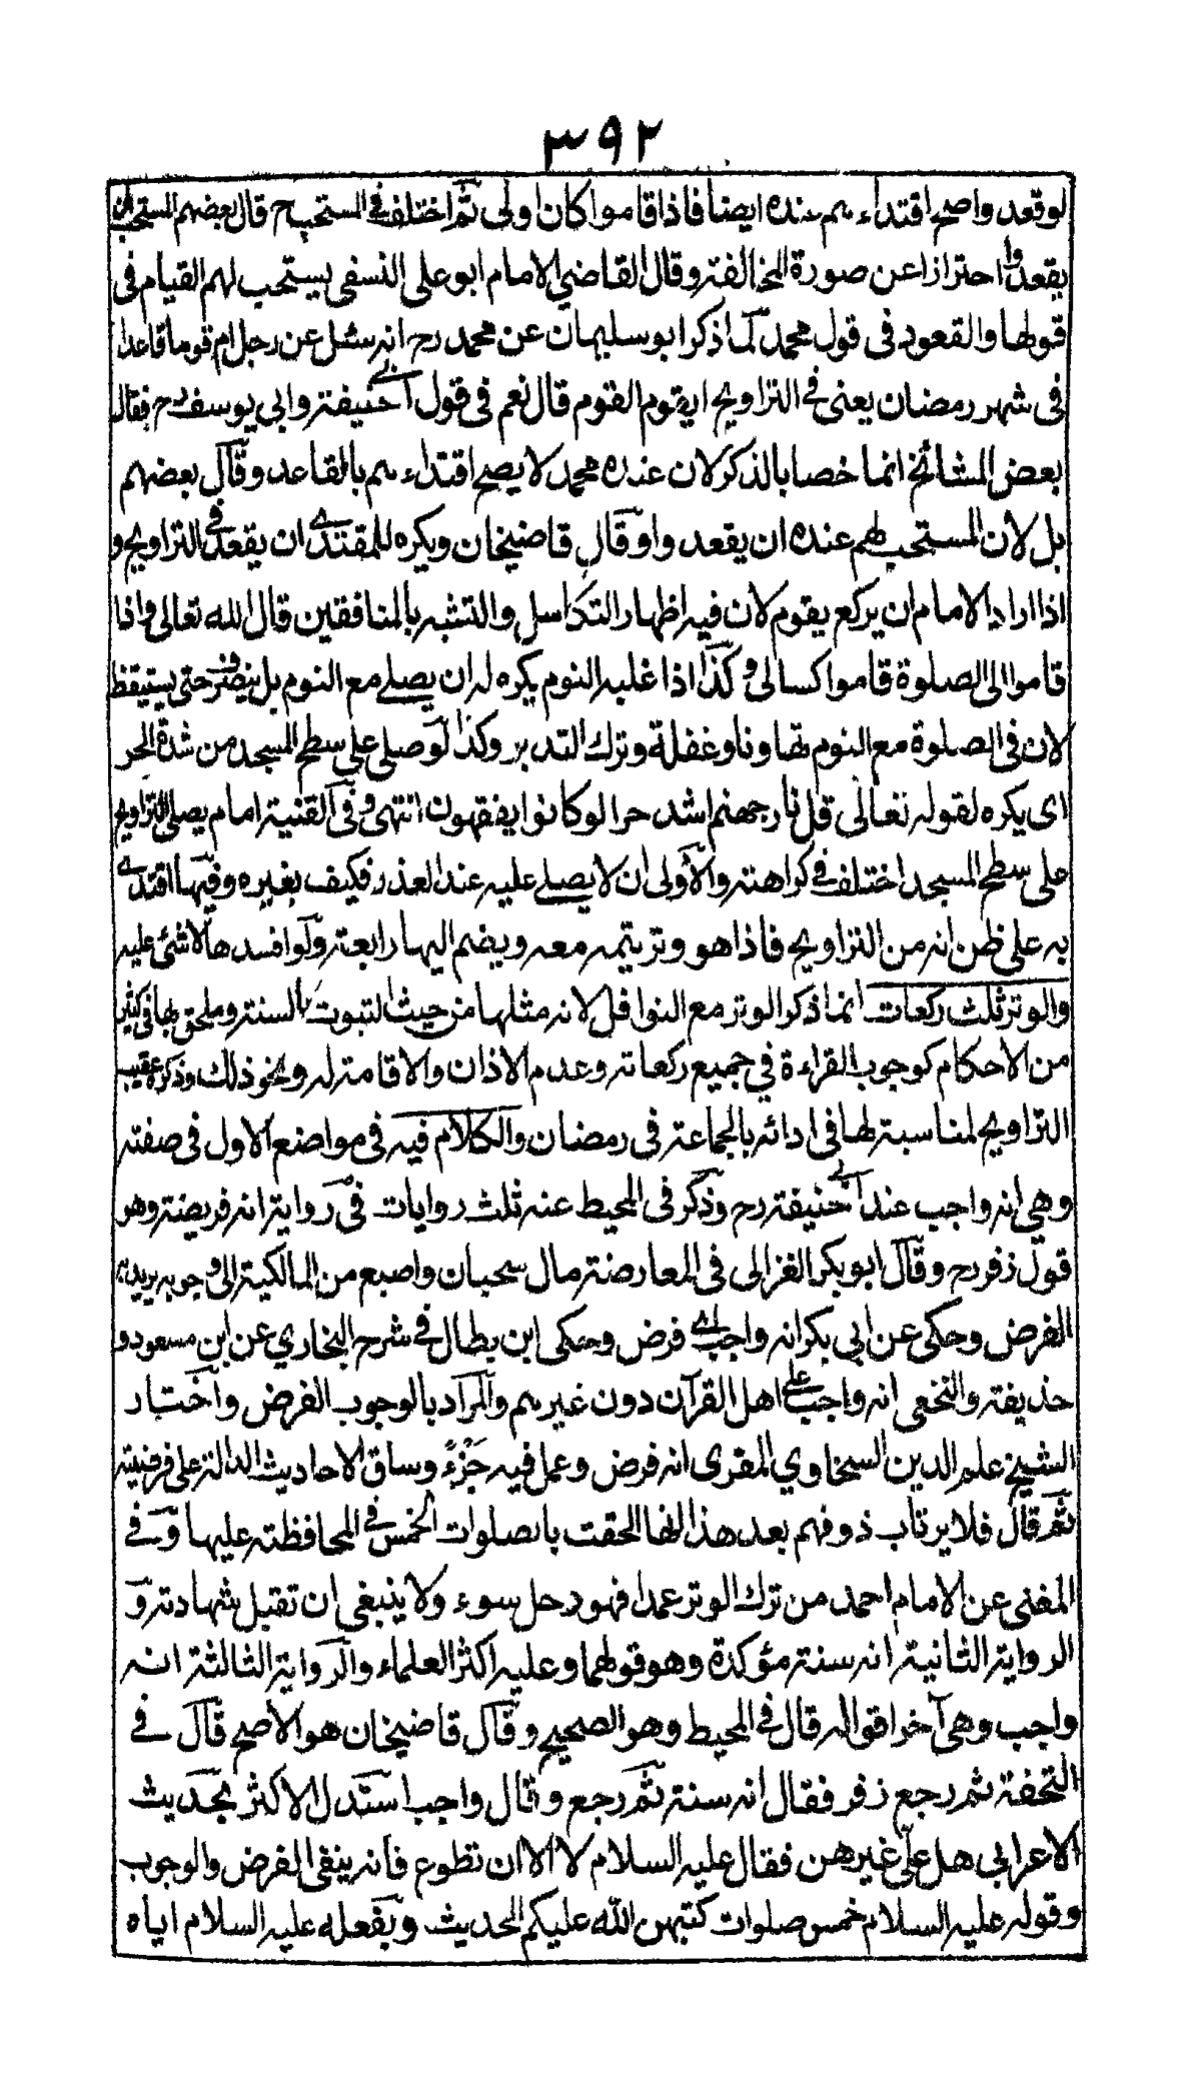 ٣٩٢
لو قعد واصح اقتداءهم عنده ايضا فاذا قاموا كان اولى ثم اختلف في المستحب ح قال بعضهم المستحب ان
يقعدوا احترازا عن صورة المخالفة وقال القاضي الامام ابو علي النسفي يستحب لهم القيام في
قولهما والقعود في قول محمد لما ذكر ابو سليمان عن محمد رح انه سئل عن رجل ام قوما قاعدا
في شهر رمضان يعنى في التراويح ايقوم القوم قال نعم في قول ابي حنيفة وابي يوسف رح فقال
بعض المشائخ انما خصا بالذكر لان عنده محمد لا يصح اقتداءهم بالقاعد وقال بعضهم
بل لان المستحب لهم عنده ان يقعدوا وقال قاضيخان ويكره للمقتدي ان يقعد في التراويح و
اذا اراد الامام ان يركع يقوم لان فيه اظهار التكاسل والتشبه بالمنافقين قال الله تعالى واذا
قاموا الى الصلوة قاموا كسالى وكذا اذا غلبه النوم يكره له ان يصلي مع النوم بل ينصرف حتى يستيقظ
لان في الصلوة مع النوم تهاونا وغفلة وترك التدبر وكذا لو صلى على سطح المسجد من شدة الحر
اى يكره لقوله تعالى قل نار جهنم اشد حرا لو كانوا يفقهون انتهى وفي القنية امام يصلى التراويح
على سطح المسجد اختلف في كراهته والاولى ان لا يصلي عليه عند العذر فكيف بغيره وفيها اقتدى
به على ظن انه من التراويح فاذا هو وتر يتمه معه ويضم اليها رابعة ولو افسدها لا شئ عليه
والوتر ثلث ركعات انما ذكر الوتر مع النوافل لانه مثلها من حيث الثبوت بالسنة وملحق بها في كثير
من الاحكام كوجوب القراءة في جميع ركعاته وعدم الاذان والاقامة له ونحو ذلك وذكره عقيب
التراويح لمناسبة لها في ادائه بالجماعة في رمضان والكلام فيه في مواضع الاول في صفته
وهي انه واجب عند ابي حنيفة رح وذكر في المحيط عنه ثلث روايات في رواية انه فريضة وهو
قول زفر رح وقال ابو بكر الغزالى في المعارضة مال سحبان واصبع من المالكية الى وجوبه يريد به
الفرض وحكى عن ابي بكر انه واجب اى فرض وحكى ابن بطال في شرح البخاري عن ابن مسعود و
حذيفة والنخعي انه واجب على اهل القرآن دون غيرهم والمراد بالوجوب الفرض واختار
الشيخ علم الدين السخاوي المقرى انه فرض وعمل فيه جزءً وساق الاحاديث الدالة على فرضيته
ثم قال فلا يرتاب ذو فهم بعد هذا انها الحقت بالصلوات الخمس في المحافظة عليها وفي
المغنى عن الامام احمد من ترك الوتر عمدا فهو رجل سوء ولا ينبغي ان تقبل شهادته و
الرواية الثانية انه سنة مؤكدة وهو قولهما وعليه اكثر العلماء والرواية الثالثة انه
واجب وهي آخر اقواله قال في المحيط وهو الصحيح وقال قاضيخان هو الاصح قال في
التحفة ثم رجع زفر فقال انه سنة ثم رجع وقال واجب استدل الاكثر بحديث
الاعرابي هل علي غيرهن فقال عليه السلام لا الا ان تطوع فانه ينفى الفرض والوجوب
وقوله عليه السلام خمس صلوات كتبهن الله عليكم الحديث وبفعله عليه السلام اياه